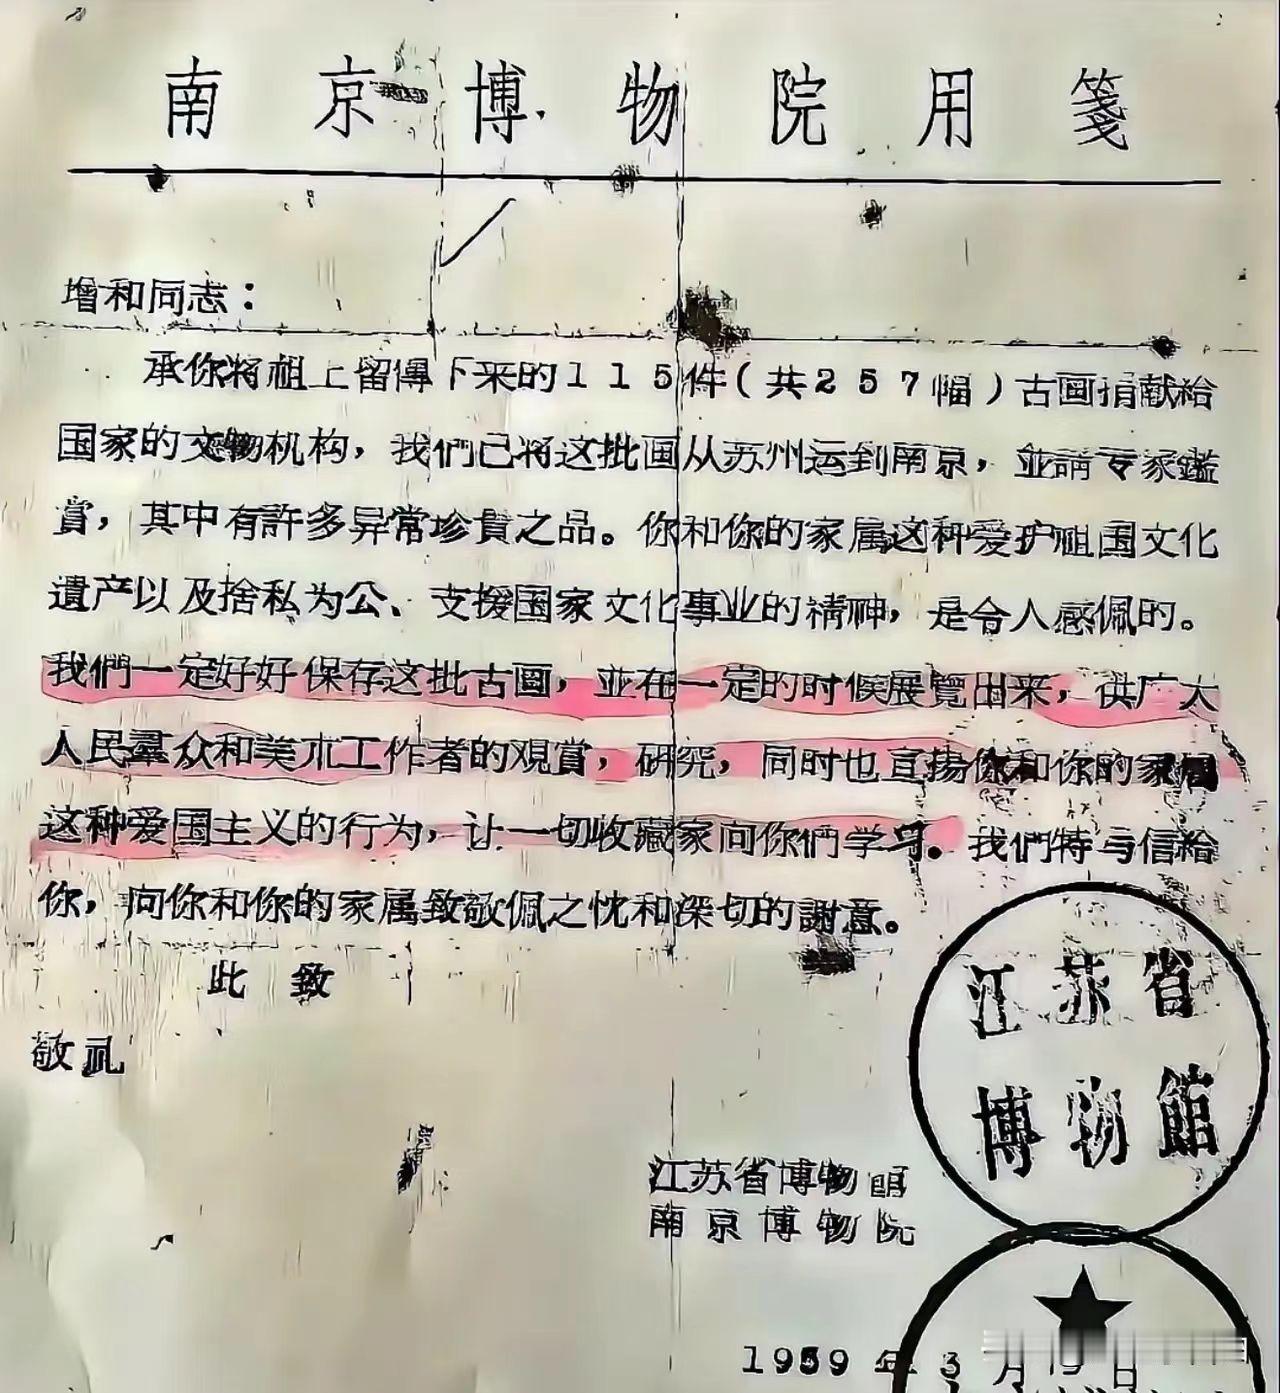 南京博物院用箋
增和同志：
承你将祖上留傳下来的115件（共257幅）古画捐献給
国家的文物机构，我們已将这批画从苏州运到南京，並請专家鑑
賞，其中有許多异常珍貴之品。你和你的家属这种爱护祖国文化
遺产以及捨私为公、支援国家文化事业的精神，是令人感佩的。
我們一定好好保存这批古画，並在一定的时候展覽出来，供广大
人民羣众和美朮工作者的观賞，研究，同时也宣扬你和你的家属
这种爱国主义的行为，让一切收藏家向你們学习。我們特与信給
你，向你和你的家属致敬佩之忱和深切的謝意。
此致
敬礼
江苏省
博物館
江苏省博物館
南京博物院
1959年3月 日